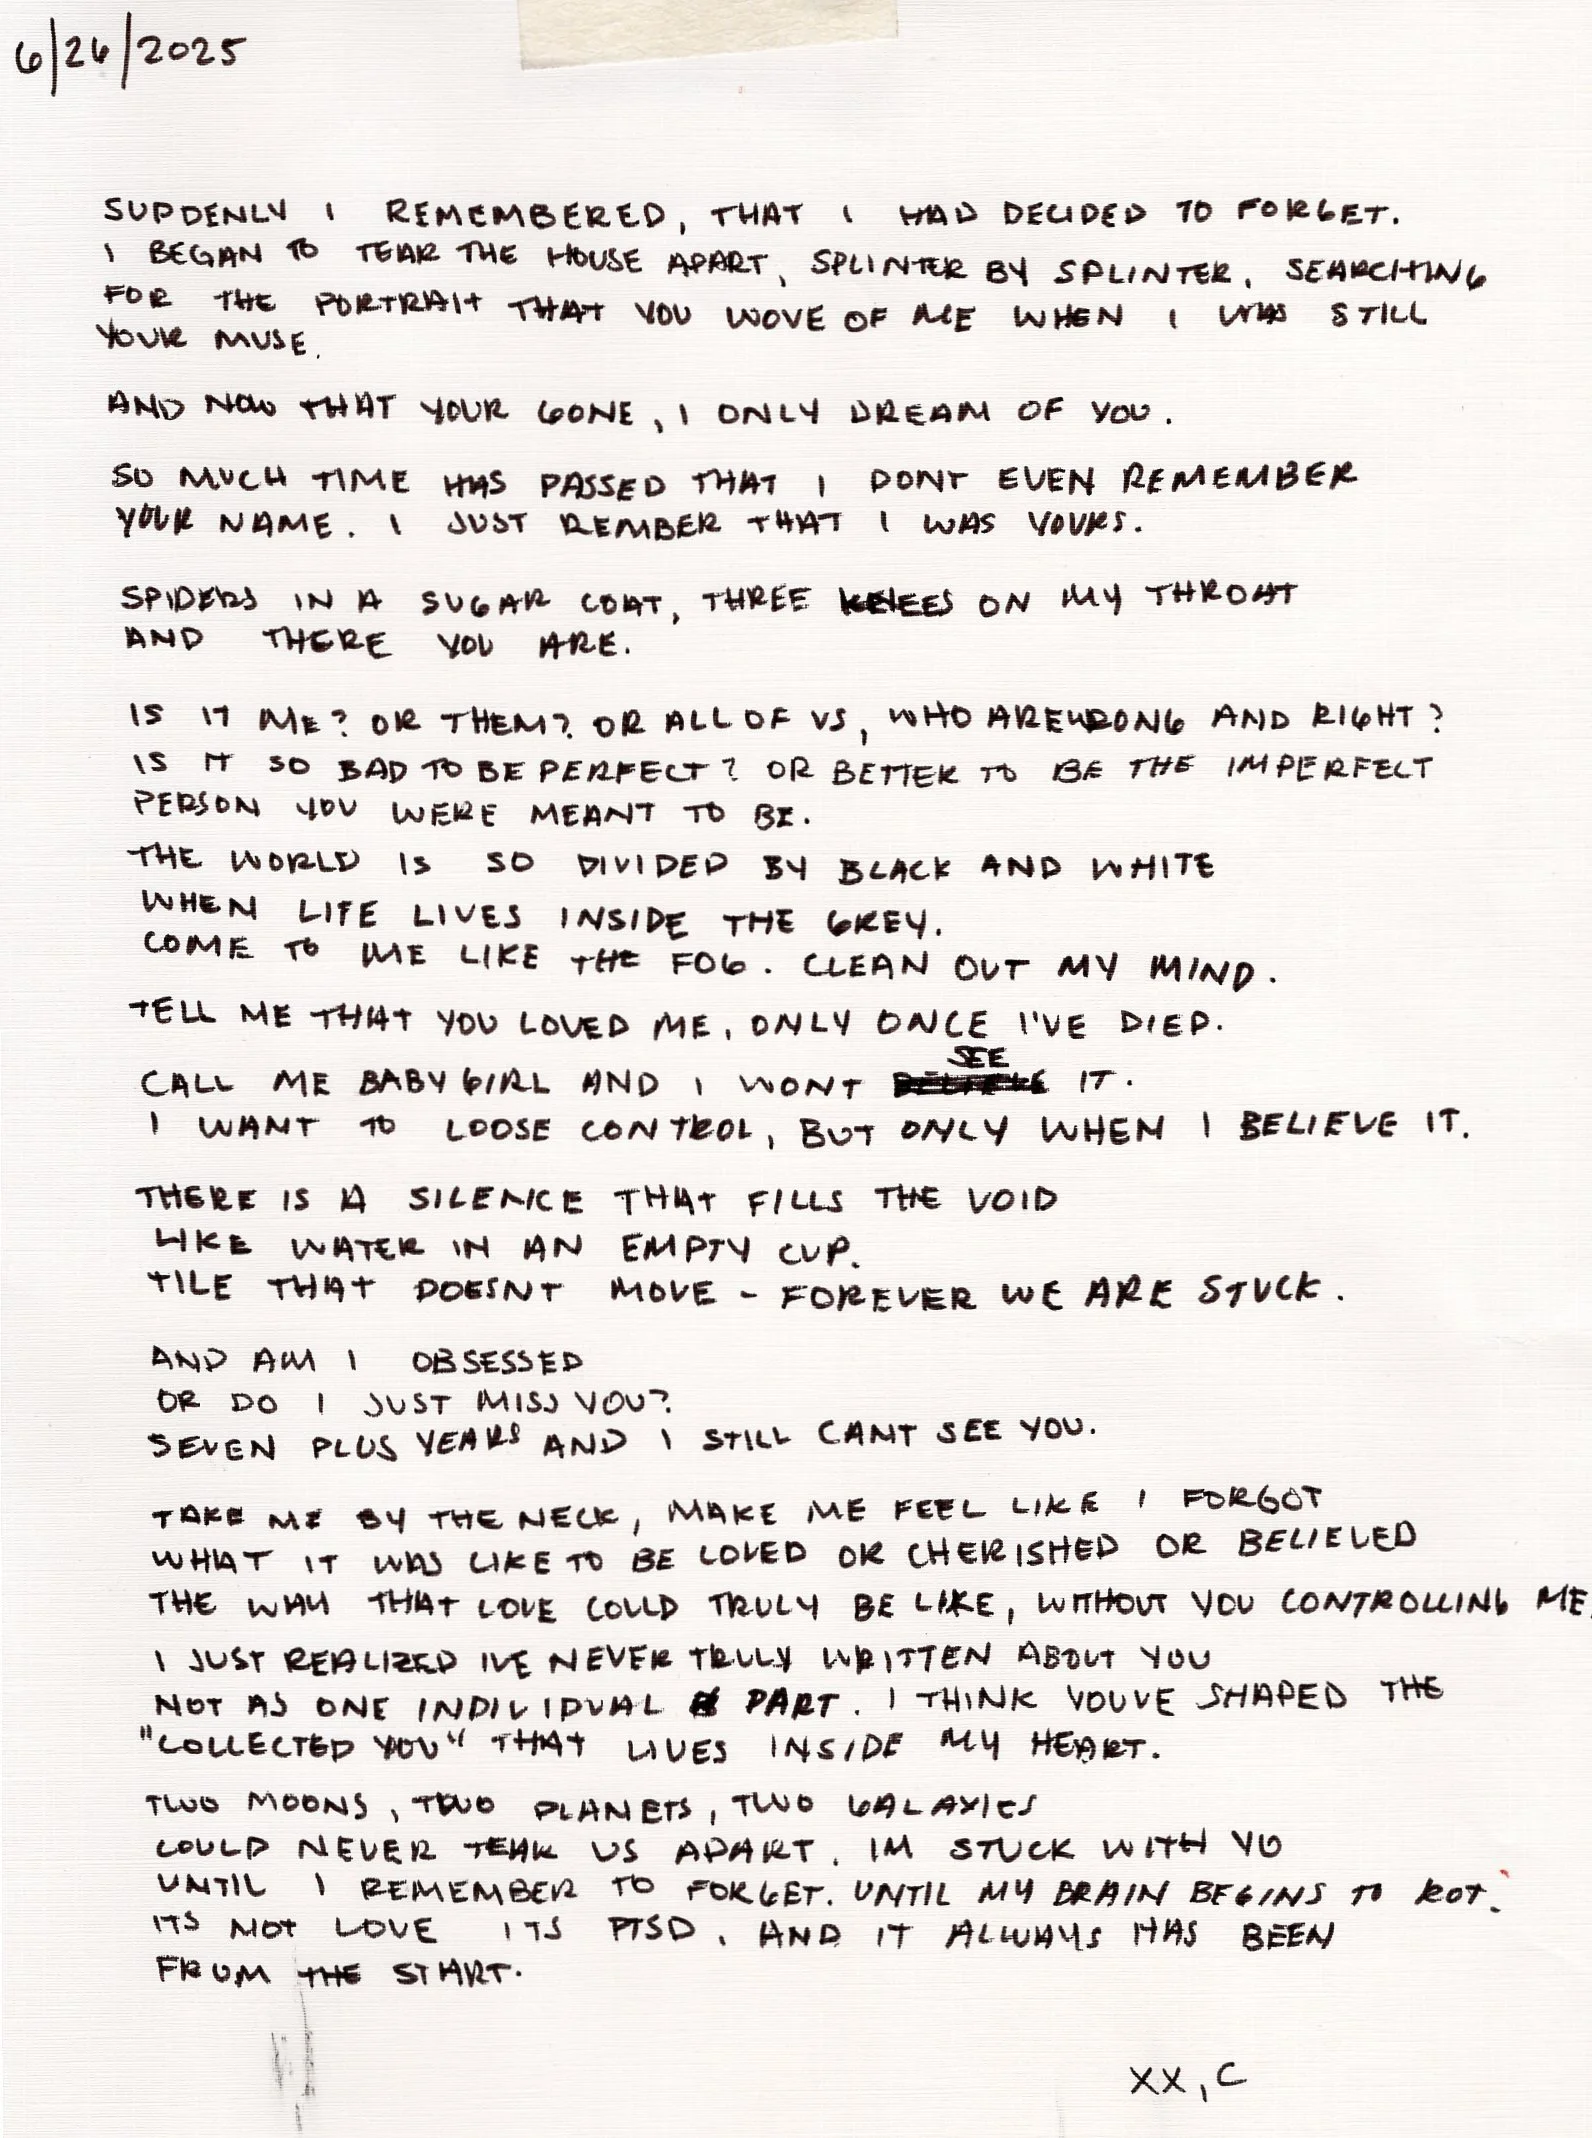 6/26/2025
SUDDENLY I REMEMBERED, THAT I HAD DECIDED TO FORGET.
I BEGAN TO TEAR THE HOUSE APART, SPLINTER BY SPLINTER, SEARCHING
FOR THE PORTRAIT THAT YOU WOVE OF ME WHEN I WAS STILL
YOUR MUSE.
AND NOW THAT YOUR GONE, I ONLY DREAM OF YOU.
SO MUCH TIME HAS PASSED THAT I DONT EVEN REMEMBER
YOUR NAME. I JUST REMBER THAT I WAS YOURS.
SPIDERS IN A SUGAR COAT, THREE KNEES ON MY THROAT
AND THERE YOU ARE.
IS IT ME? OR THEM? OR ALL OF US, WHO ARE WRONG AND RIGHT?
IS IT SO BAD TO BE PERFECT? OR BETTER TO BE THE IMPERFECT
PERSON YOU WERE MEANT TO BE.
THE WORLD IS SO DIVIDED BY BLACK AND WHITE
WHEN LIFE LIVES INSIDE THE GREY.
COME TO ME LIKE THE FOG. CLEAN OUT MY MIND.
TELL ME THAT YOU LOVED ME, ONLY ONCE I'VE DIED.
CALL ME BABY GIRL AND I WONT SEE IT.
I WANT TO LOOSE CONTROL, BUT ONLY WHEN I BELIEVE IT.
THERE IS A SILENCE THAT FILLS THE VOID
LIKE WATER IN AN EMPTY CUP.
TILE THAT DOESNT MOVE - FOREVER WE ARE STUCK.
AND AM I OBSESSED
OR DO I JUST MISS YOU?
SEVEN PLUS YEARS AND I STILL CANT SEE YOU.
TAKE ME BY THE NECK, MAKE ME FEEL LIKE I FORGOT
WHAT IT WAS LIKE TO BE LOVED OR CHERISHED OR BELIEVED
THE WAY THAT LOVE COULD TRULY BE LIKE, WITHOUT YOU CONTROLLING ME.
I JUST REALIZED IVE NEVER TRULY WRITTEN ABOUT YOU
NOT AS ONE INDIVIDUAL PART. I THINK YOUVE SHAPED THE
"COLLECTED YOU" THAT LIVES INSIDE MY HEART.
TWO MOONS, TWO PLANETS, TWO GALAXIES
COULD NEVER TEAR US APART. IM STUCK WITH YO
UNTIL I REMEMBER TO FORGET. UNTIL MY BRAIN BEGINS TO ROT.
ITS NOT LOVE ITS PTSD. AND IT ALWAYS HAS BEEN
FROM THE START.
XX, C